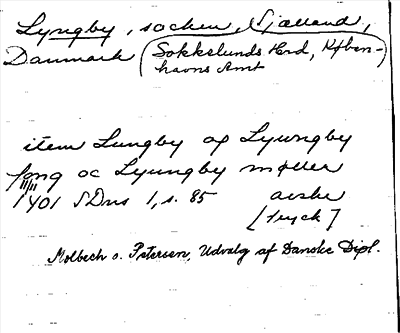 Lyngby, socken, Sjælland,
Danmark (Sokkelunds Hrd, Køben-
havns Amt
item Lungby oc Lyungby
fong oc Lyungby møller
1401 SDns 1, s. 85 avskr
[tryck]
Molbech o. Petersen, Udvalg af Danske Dipl.